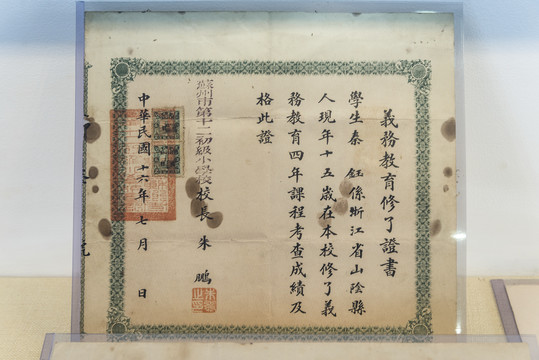 義務教育修了證書
學生秦 鈺係浙江省山陰縣
人現年十五歲在本校修了義
務教育四年課程考查成績及
格此證
蘇州市第十二初級小學校校長 朱 鵬
中華民國十六年七月 日